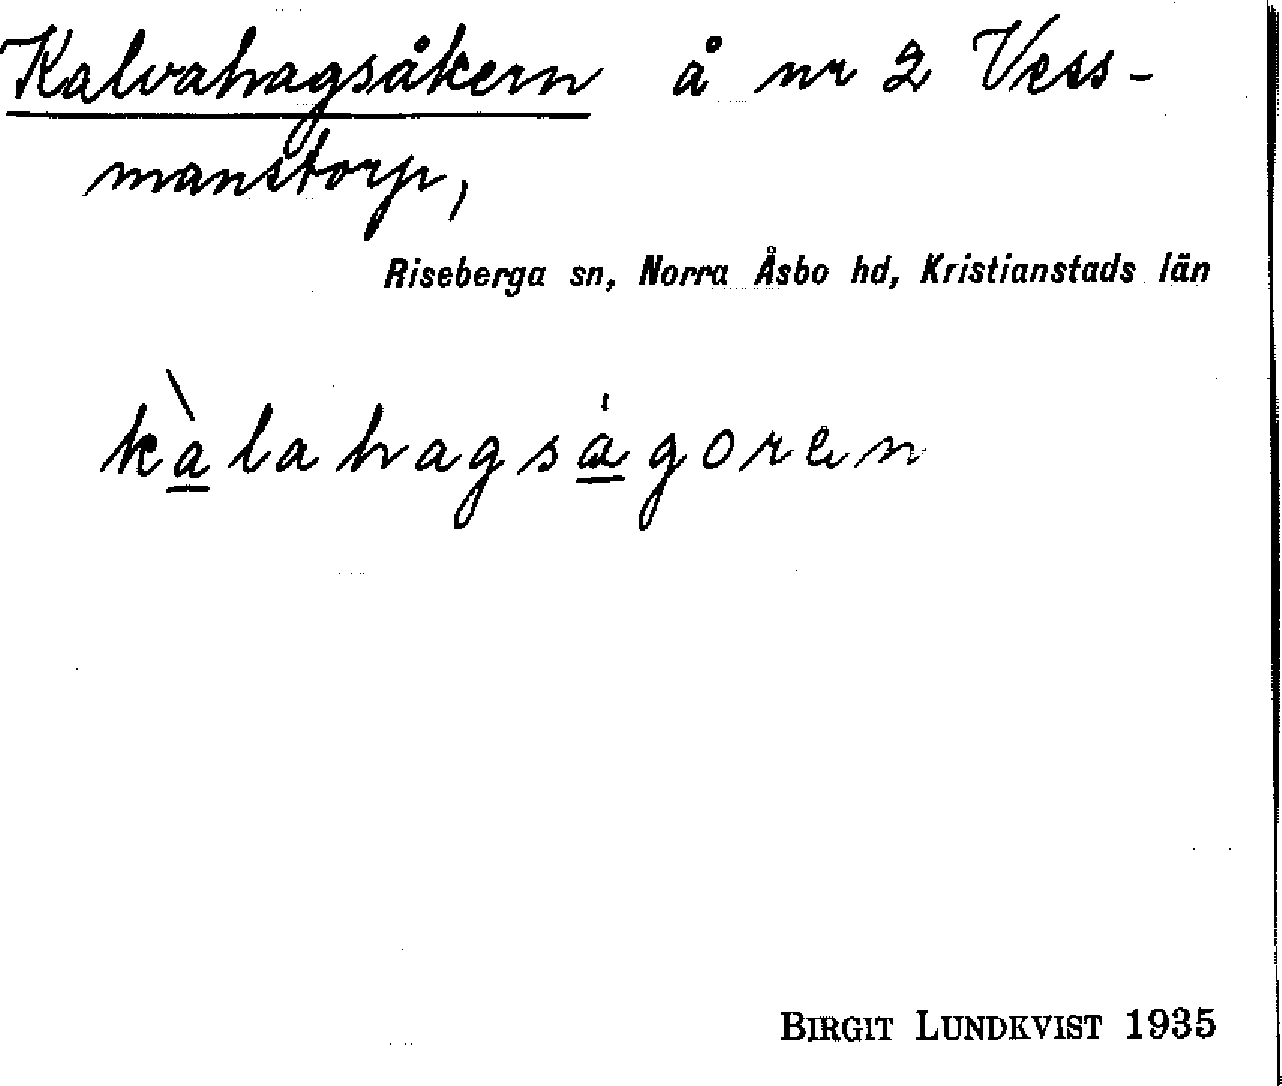 Kalvahagsåkern å nr 2 Vess-
manstorp,
Riseberga sn, Norra Åsbo hd, Kristianstads län
kàlahagságoren
BIRGIT LUNDKVIST 1935